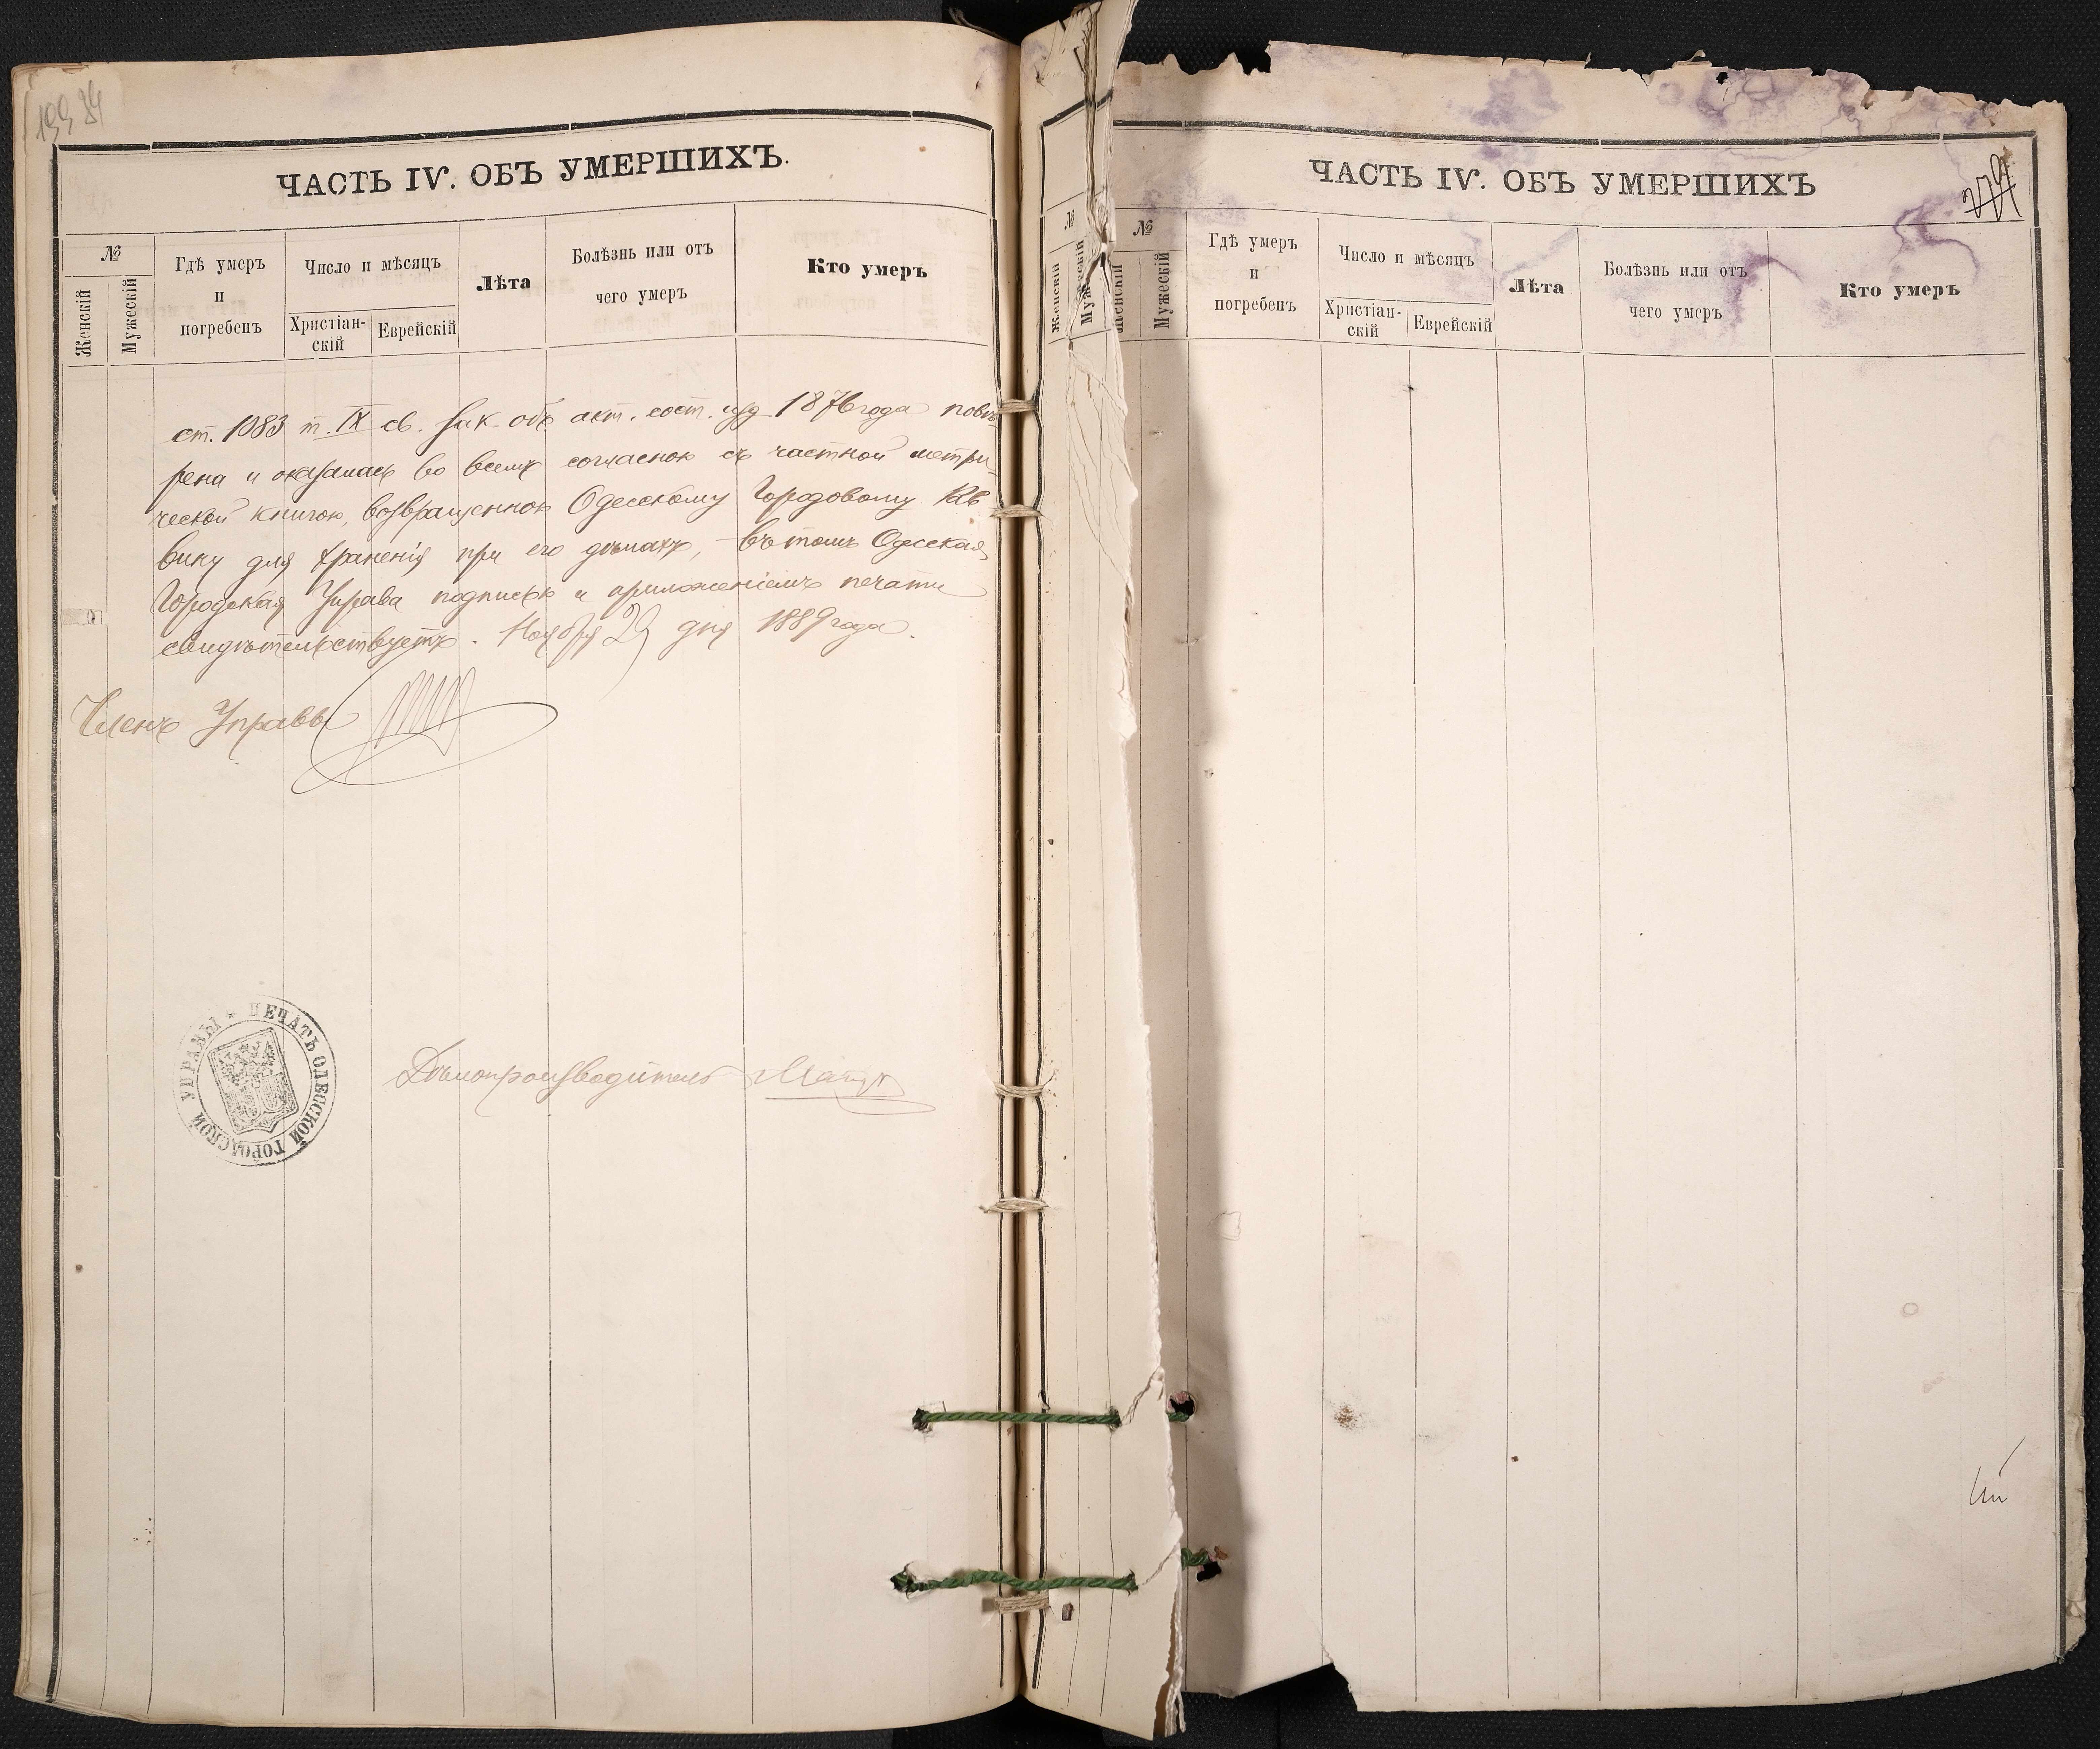 ЧАСТЬ IV. ОБЪ УМЕРШИХЪ.
№
Женскій
Мужескій
Гдѣ умеръ
и
погребенъ
Число и мѣсяцъ
Христіан-
скій
Еврейскій
Лѣта
Болѣзнь или отъ
чего умеръ
Кто умеръ
ст. 1083 т. IX св. Зак. объ акт. сост. изд. 1876 года повѣ
рена и оказалась во всемъ согласною съ частной метри
ческой книгою, возвращенною Одесскому Городовому Рав
вину для храненія при его дѣлахъ, въ томъ Одесская
Городская Управа подписью и приложеніемъ печати
свидѣтельствуетъ. Ноября 29 дня 1889 года.
Членъ Управы
ПЕЧАТЬ ОДЕССКОЙ ГОРОДСКОЙ УПРАВЫ
Дѣлопроизводитель
№
Женскій
Мужескій
ЧАСТЬ IV. ОБЪ УМЕРШИХЪ
№
Женскій
Мужескій
Гдѣ умеръ
и
погребенъ
Число и мѣсяцъ
Христіан-
скій
Еврейскій
Лѣта
Болѣзнь или отъ
чего умеръ
Кто умеръ